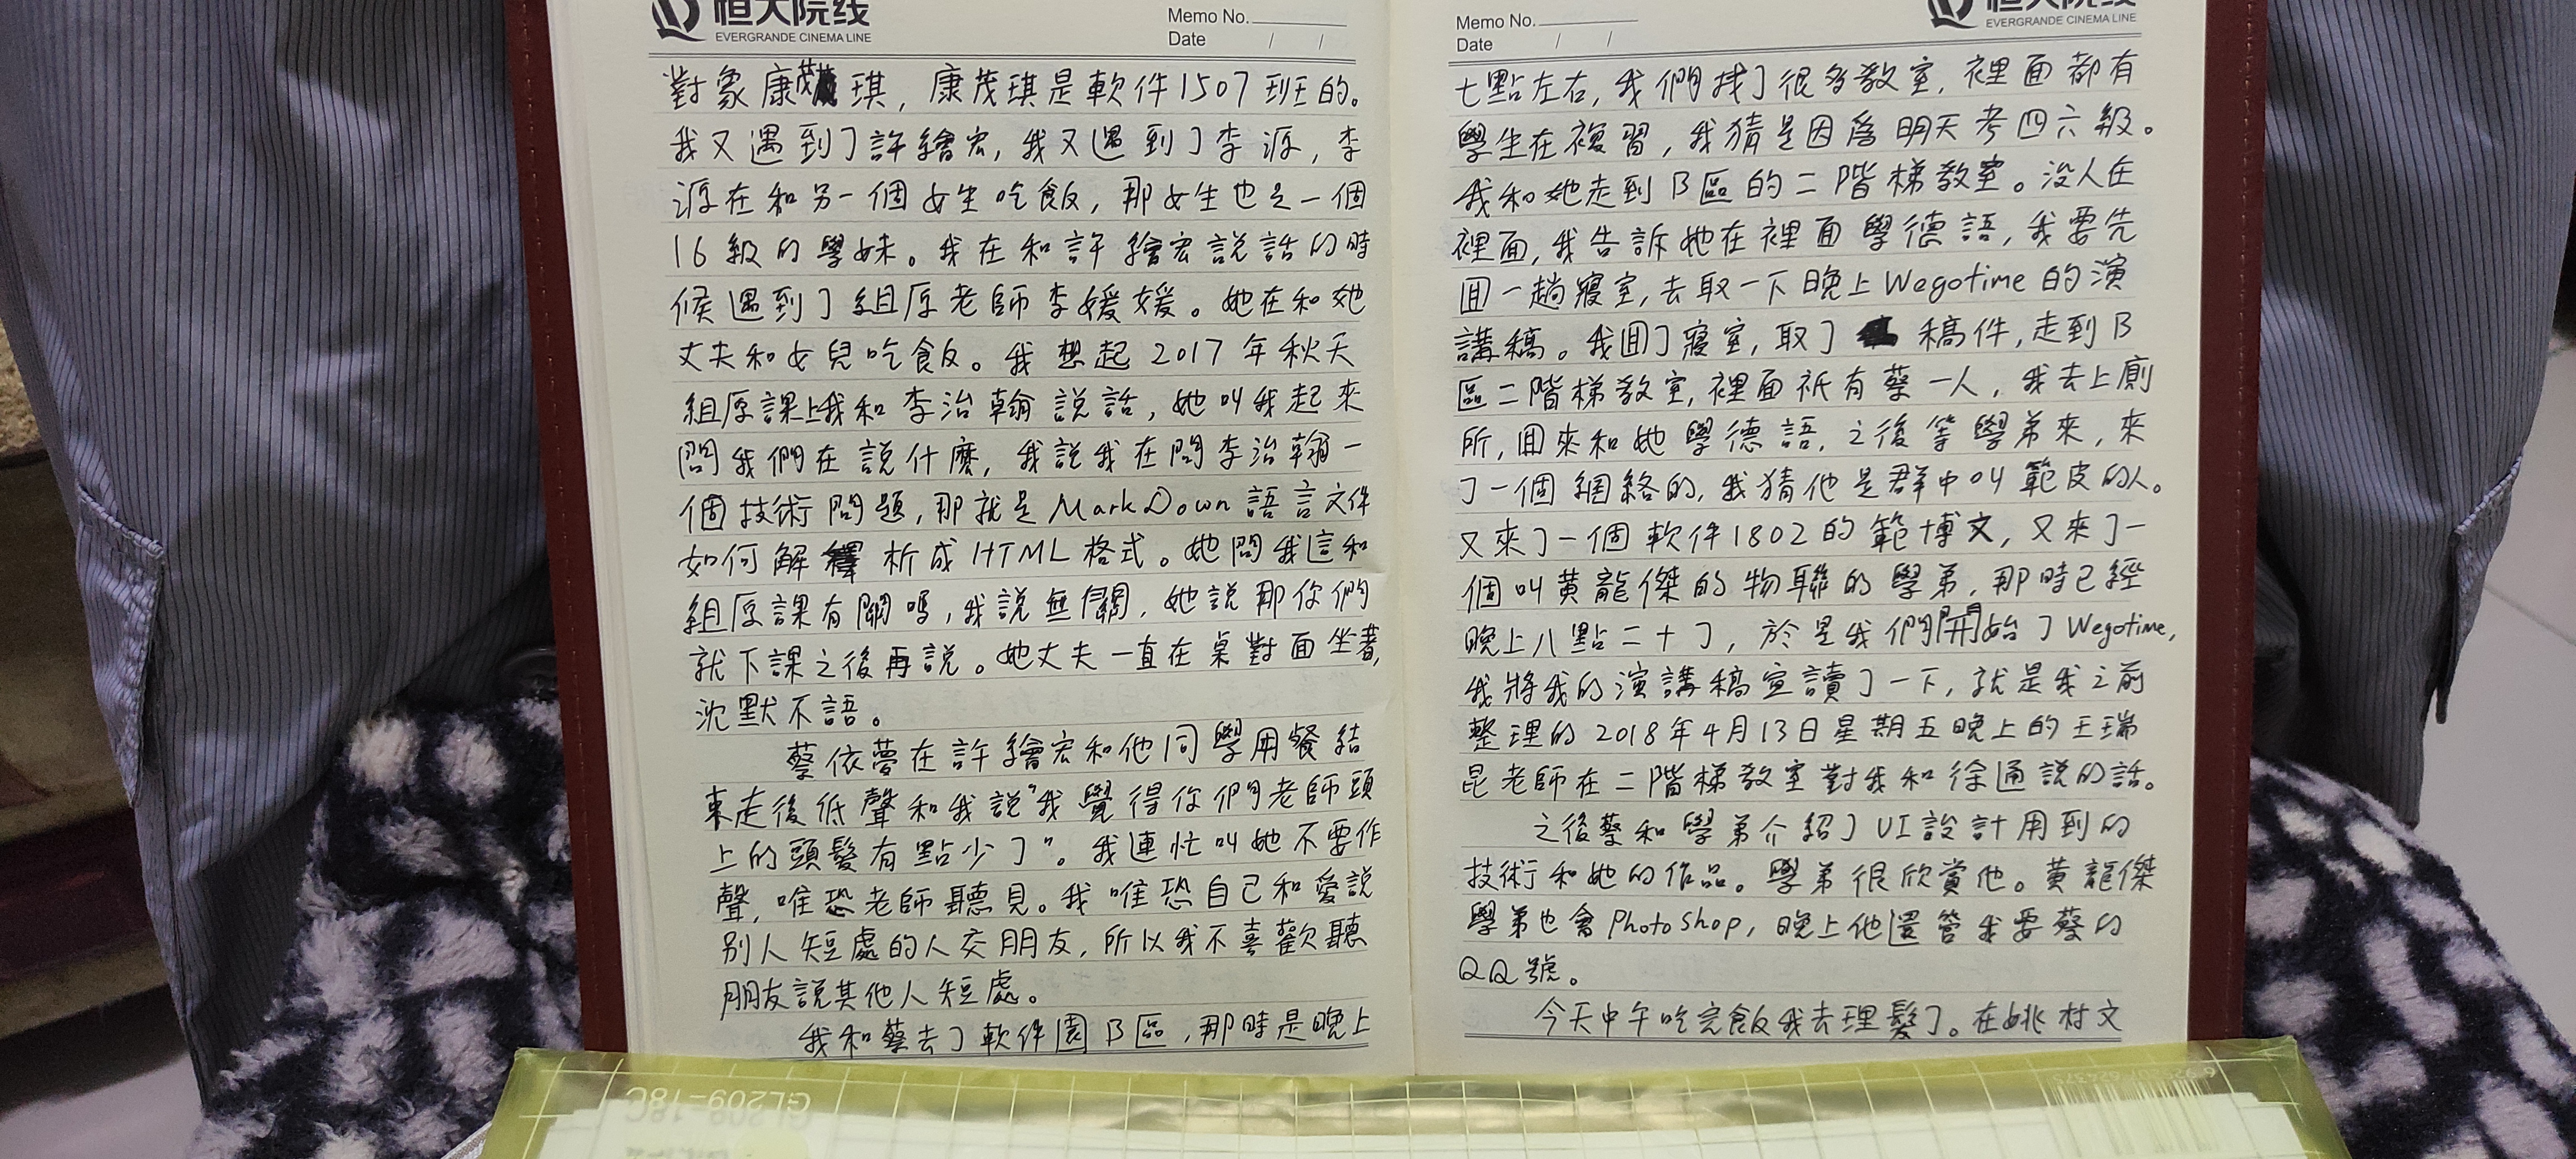 恒大院线
EVERGRANDE CINEMA LINE
Memo No.
Date / /
對象康茂琪，康茂琪是軟件1507班的。
我又遇到了許繪宏，我又遇到了李源，李
源在和另一個女生吃飯，那女生也是一個
16級的學妹。我在和許繪宏說話的時
候遇到了組原老師李媛媛。她在和她
丈夫和女兒吃飯。我想起2017年秋天
組原課上我和李治翰說話，她叫我起來
問我們在說什麼，我說我在問李治翰一
個技術問題，那就是MarkDown語言文件
如何解析成HTML格式。她問我這和
組原課有關嗎，我說無關，她說那你們
就下課之後再說。她丈夫一直在桌對面坐著，
沈默不語。
蔡依夢在許繪宏和他同學用餐結
束走後低聲和我說“我覺得你們老師頭
上的頭髮有點少了”。我連忙叫她不要作
聲，唯恐老師聽見。我唯恐自己和愛說
別人短處的人交朋友，所以我不喜歡聽
朋友說其他人短處。
我和蔡去了軟件園B區，那時是晚上
恒大院线
EVERGRANDE CINEMA LINE
Memo No.
Date / /
七點左右，我們找了很多教室，裡面都有
學生在複習，我猜是因為明天考四六級。
我和她走到B區的二階梯教室。沒人在
裡面，我告訴她在裡面學德語，我要先
回一趟寢室，去取一下晚上Wegotime的演
講稿。我回了寢室，取了稿件，走到B
區二階梯教室，裡面祇有蔡一人，我去上廁
所，回來和她學德語，之後等學弟來，來
了一個網絡的，我猜他是群中叫範皮的人。
又來了一個軟件1802的範博文，又來了一
個叫黄龍傑的物聯的學弟，那時已經
晚上八點二十了，於是我們開始了Wegotime，
我將我的演講稿宣讀了一下，就是我之前
整理的2018年4月13日星期五晚上的王瑞
昆老師在二階梯教室對我和徐通說的話。
之後蔡和學弟介紹了UI設計用到的
技術和她的作品。學弟很欣賞他。黄龍傑
學弟也會PhotoShop，晚上他還管我要蔡的
QQ號。
今天中午吃完飯我去理髮了。在姚村文
GL209-18C